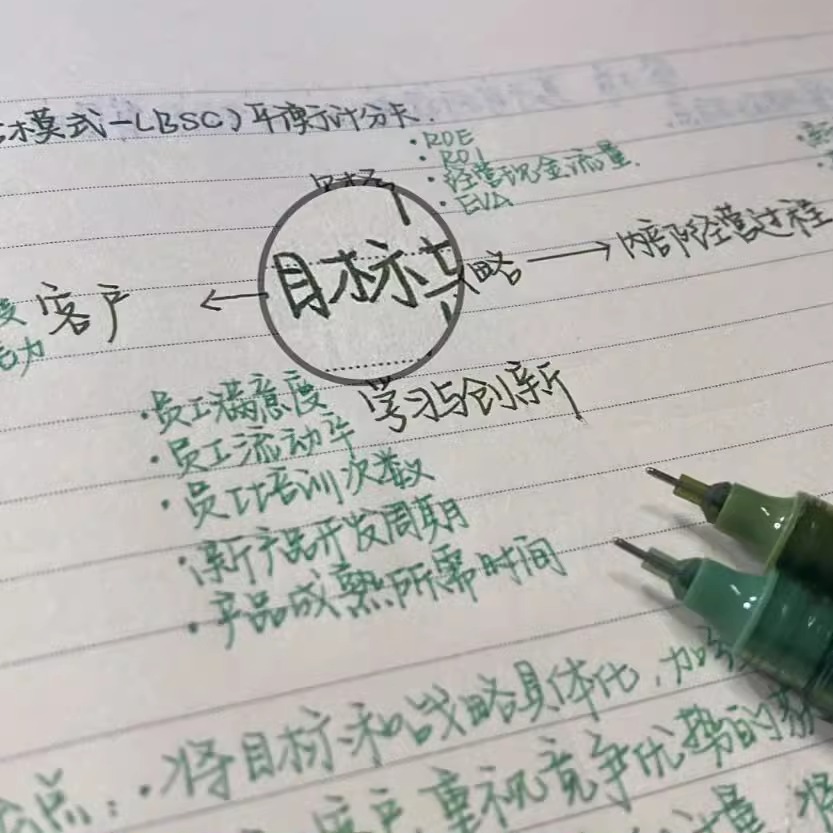 模式-(BSC)平衡计分卡.
·ROE
·ROI
·经营现金流量.
·EVA
客户 ← 目标 略 → 内部经营过程
学习与创新
·员工满意度
·员工流动率
·员工培训次数
·新产品开发周期
·产品成熟所需时间
点:·将目标和战略具体化,加
客户,重视竞争优势的